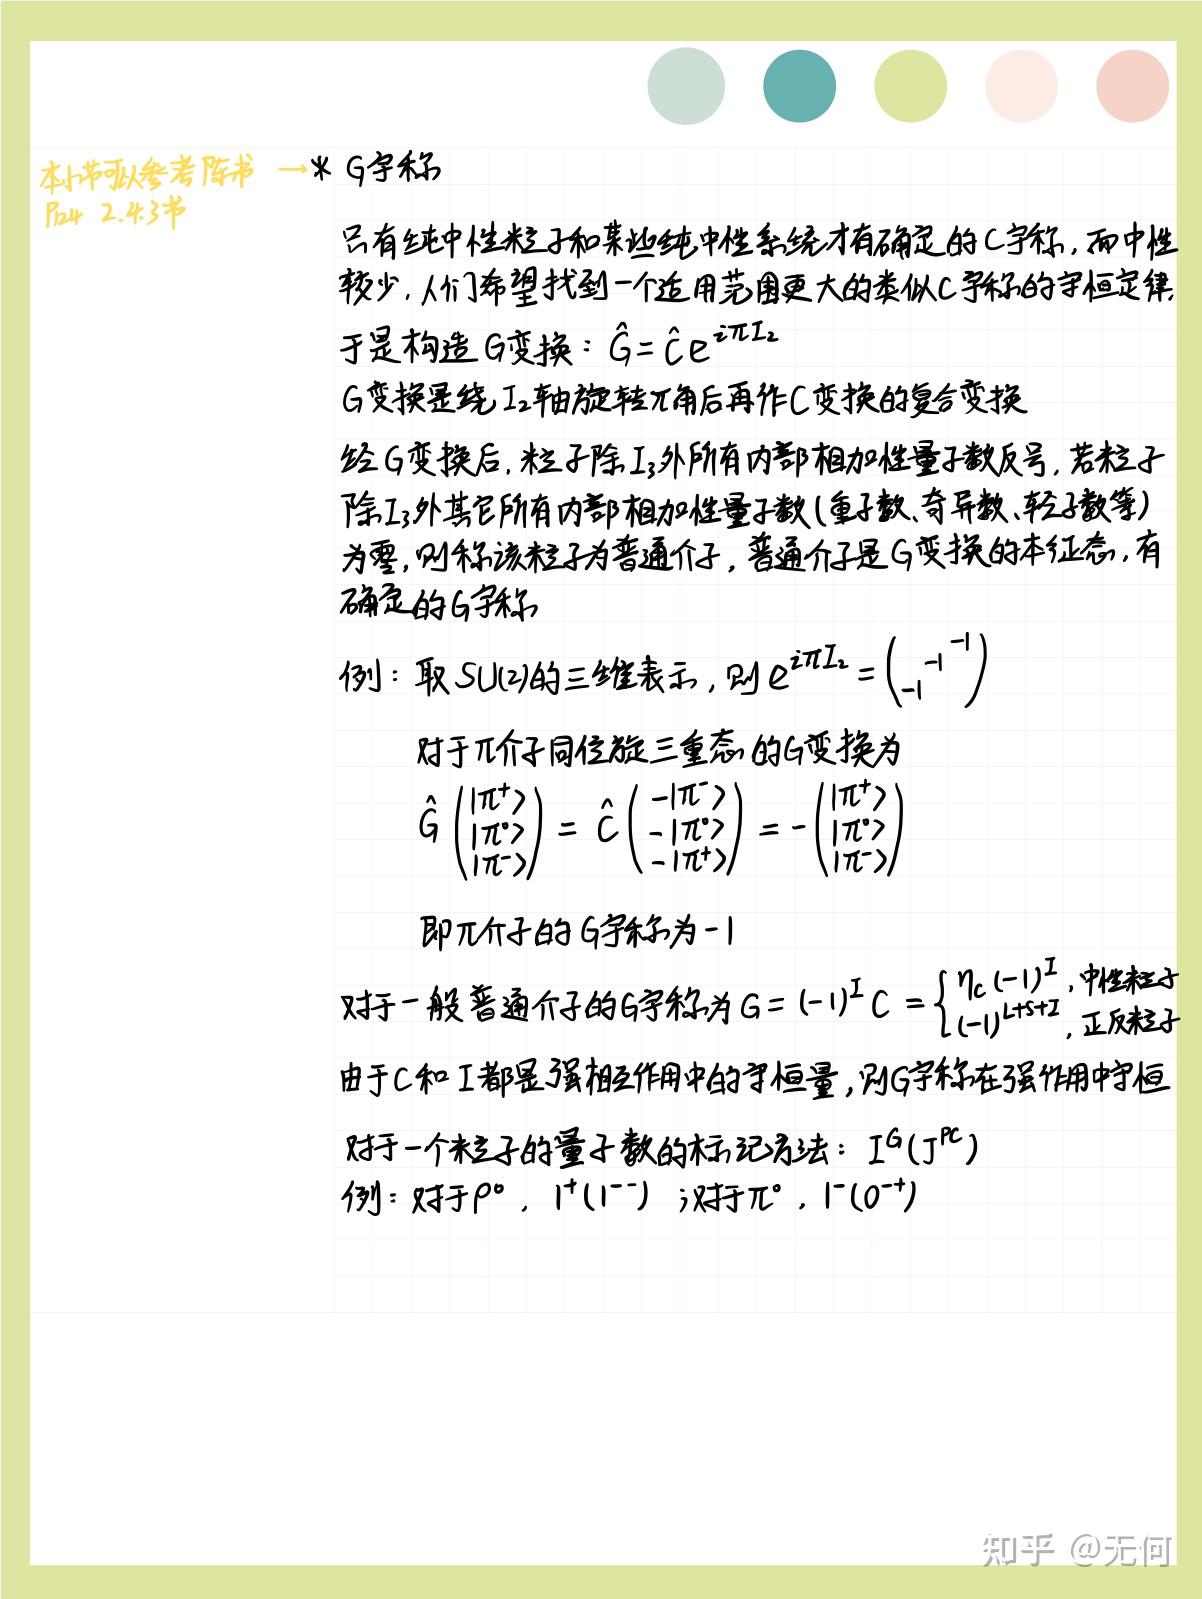 本小节可以参考陈书
P124 2.4.3节
→* G宇称
只有纯中性粒子和某些纯中性系统才有确定的C宇称，而中性
较少，人们希望找到一个适用范围更大的类似C宇称的守恒定律，
于是构造G变换：Ĝ=Ĉe^{iπI₂}
G变换是绕I₂轴旋转π角后再作C变换的复合变换
经G变换后，粒子除I₃外所有内部相加性量子数反号，若粒子
除I₃外其它所有内部相加性量子数(重子数、奇异数、轻子数等)
为零，则称该粒子为普通介子，普通介子是G变换的本征态，有
确定的G宇称
例：取SU(2)的三维表示，则e^{iπI₂} = ( -1 -1 -1 )
对于π介子同位旋三重态的G变换为
Ĝ (|π⁺> |π⁰> |π⁻>) = Ĉ (-|π⁻> -|π⁰> -|π⁺>) = -(|π⁺> |π⁰> |π⁻>)
即π介子的G宇称为-1
对于一般普通介子的G宇称为G=(-1)^I C = { η_C(-1)^I，中性粒子
(-1)^{L+S+I}，正反粒子
由于C和I都是强相互作用中的守恒量，则G宇称在强作用中守恒
对于一个粒子的量子数的标记方法：I^G(J^{PC})
例：对于ρ⁰，1⁺(1⁻⁻)；对于π⁰，1⁻(0⁻⁺)
知乎 @无何